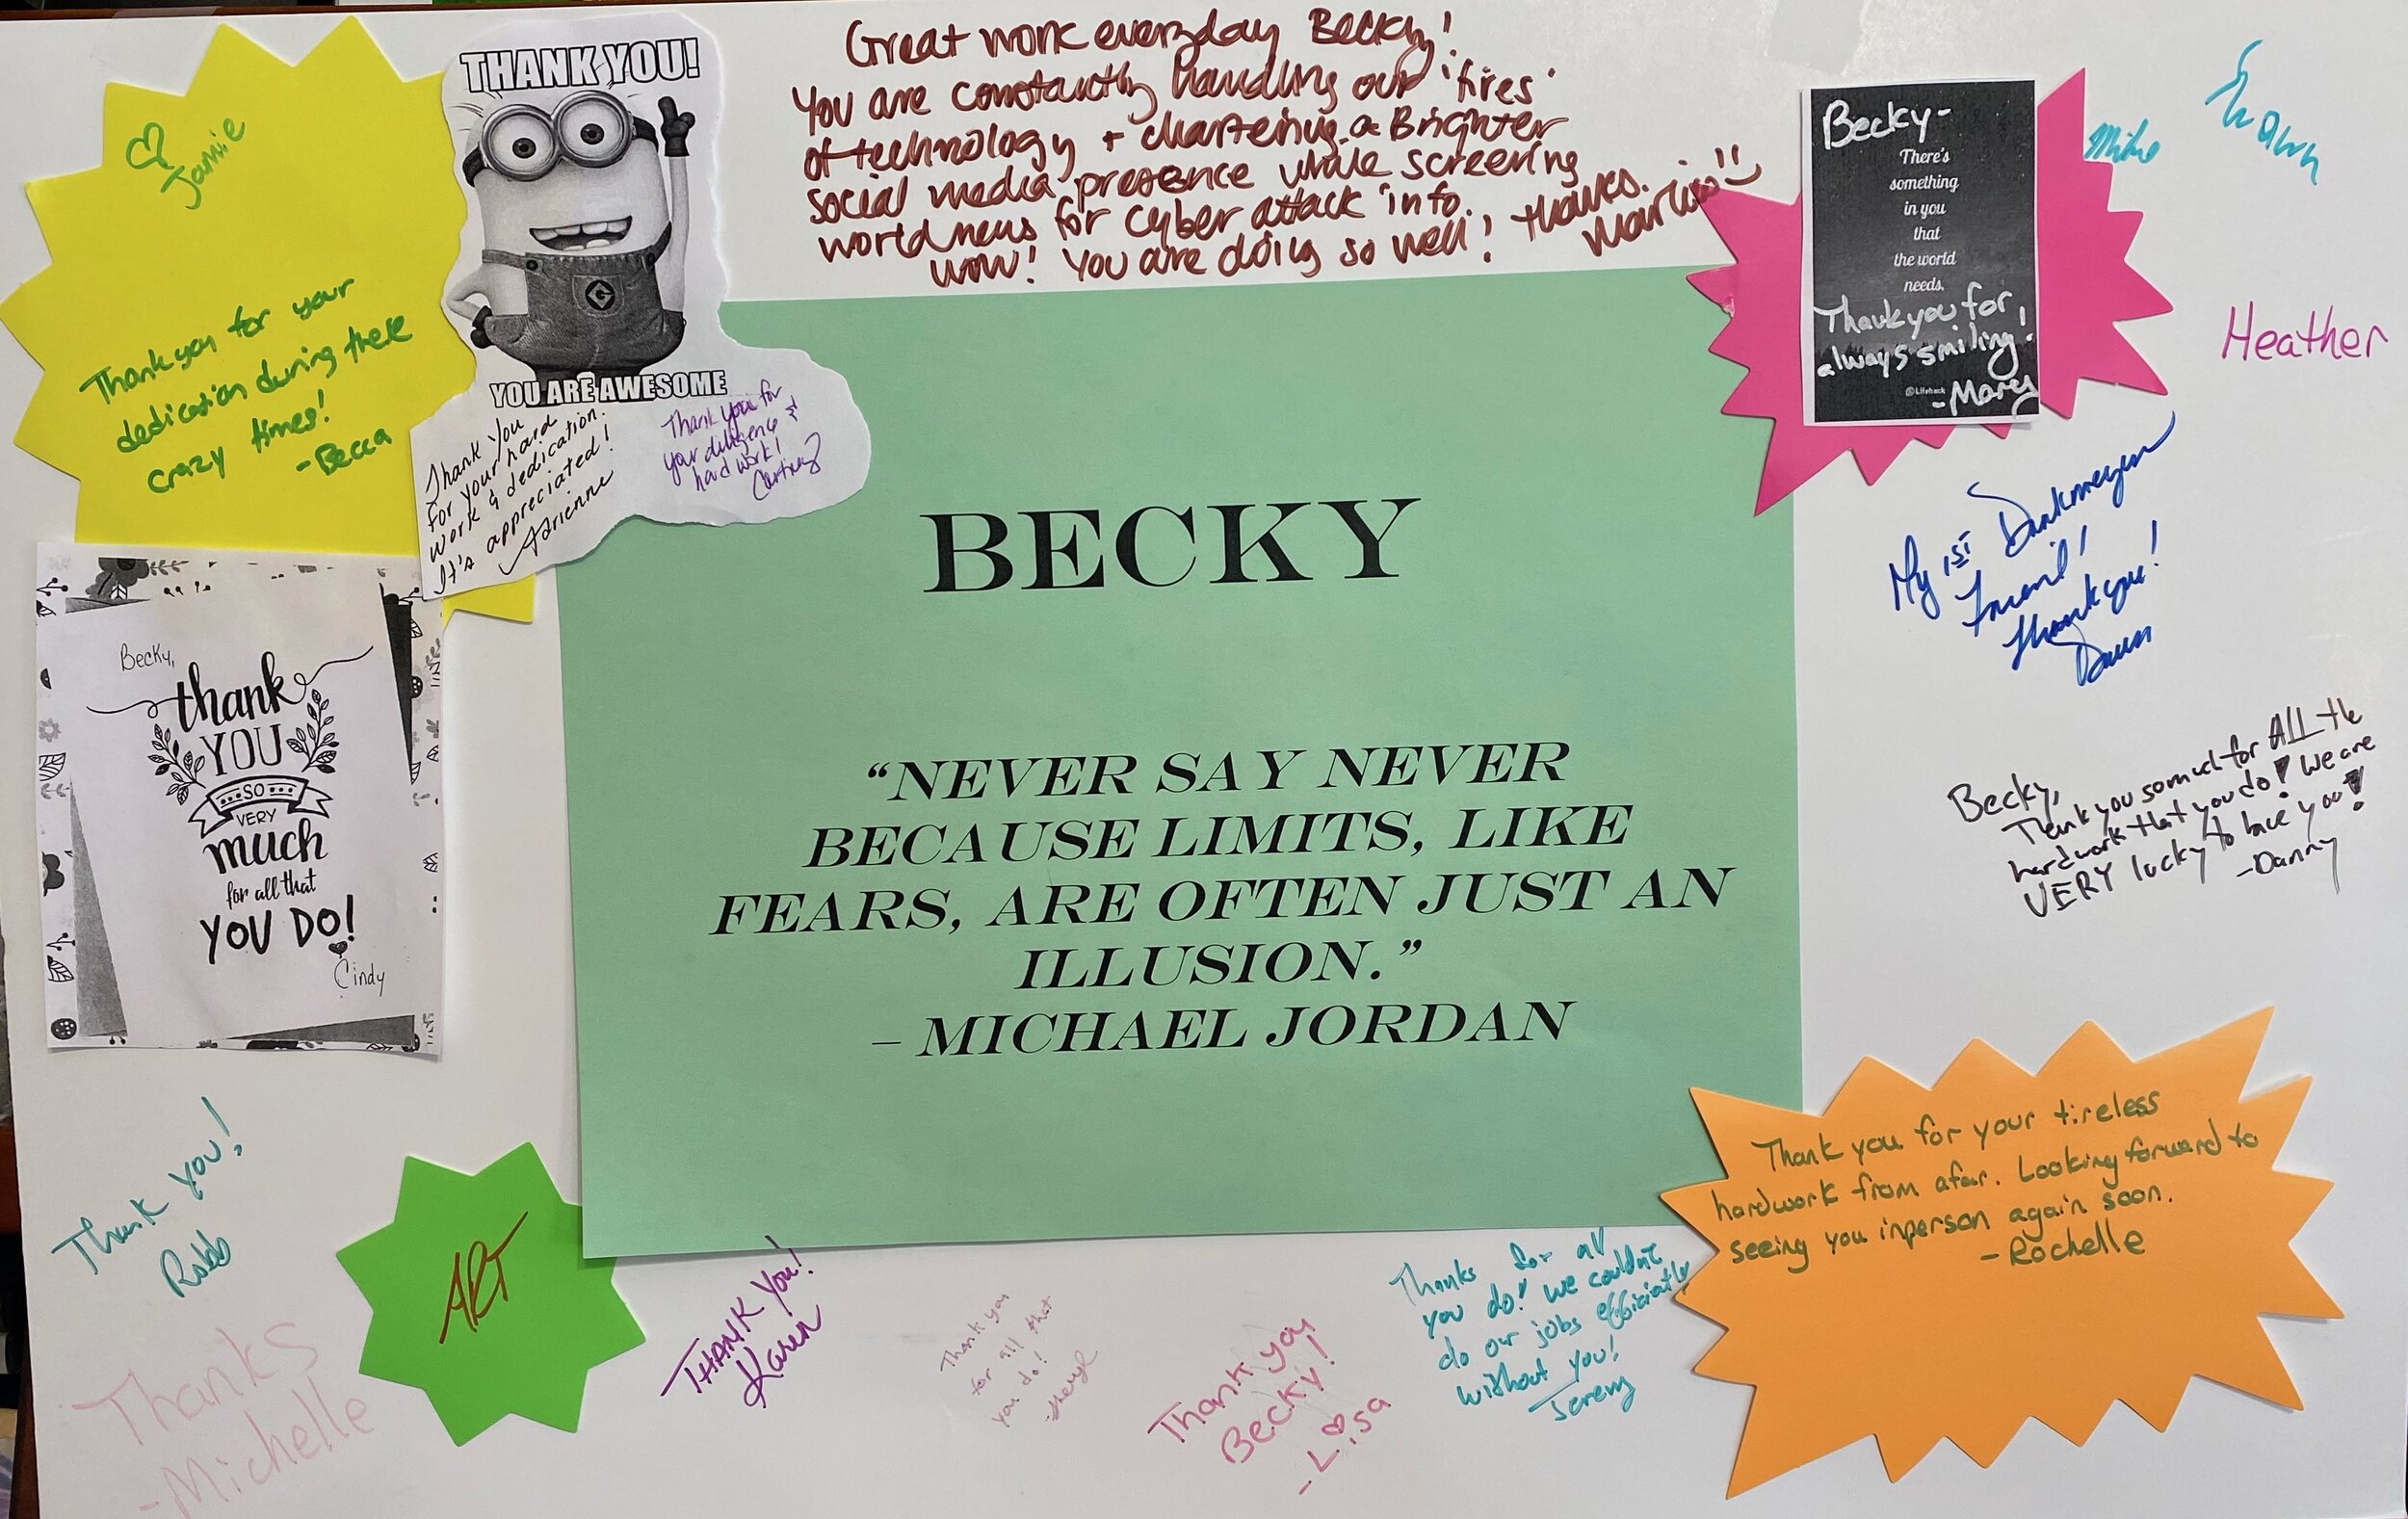 ♡ Jamie
Thank you for your
dedication during these
crazy times!
-Becca
THANK YOU!
G
YOU ARE AWESOME
Thank You
for your hard
work & dedication.
It's appreciated!
Adrienne
Thank you for
your diligence &
hard work!
Great work everyday Becky!
You are constantly handling our 'fires'
of technology + chartering a Brighter
social media presence while screening
world news for cyber attack info.
wow! You are doing so well! thanks.
Becky-
There's
something
in you
that
the world
needs.
Thank you for
always smiling!
@Lifehack
-Mary
Mike
Shawn
Heather
My 1ST
Friend!
Thank you!
Dawn
Becky,
Thank you so much for ALL the
hardwork that you do! We are
VERY lucky to have you!
-Danny
BECKY
“NEVER SAY NEVER
BECAUSE LIMITS, LIKE
FEARS, ARE OFTEN JUST AN
ILLUSION.”
– MICHAEL JORDAN
Becky,
thank
YOU
SO
VERY
much
for all that
YOU DO!
Cindy
Thank you!
Robb
Thanks
-Michelle
ART
THANK YOU!
Karin
Thank you
for all that
you do!
-Sheryl
Thank you
Becky!
-Lisa
Thanks for all
you do! We couldnt
do our jobs efficiently
without you!
Jeremy
Thank you for your tireless
hardwork from afar. Looking forward to
seeing you inperson again soon.
-Rochelle